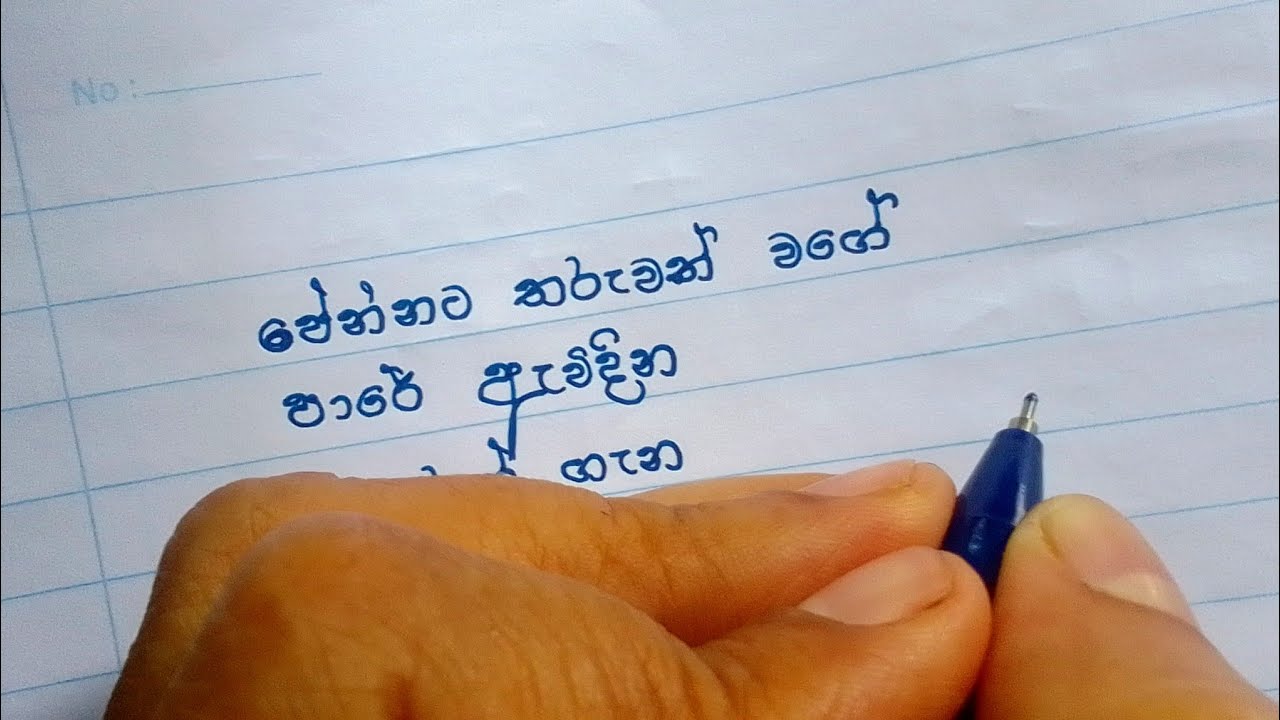 No :
පේන්නට තරුවක් වගේ
පාරේ ඇවිදින
ගැන